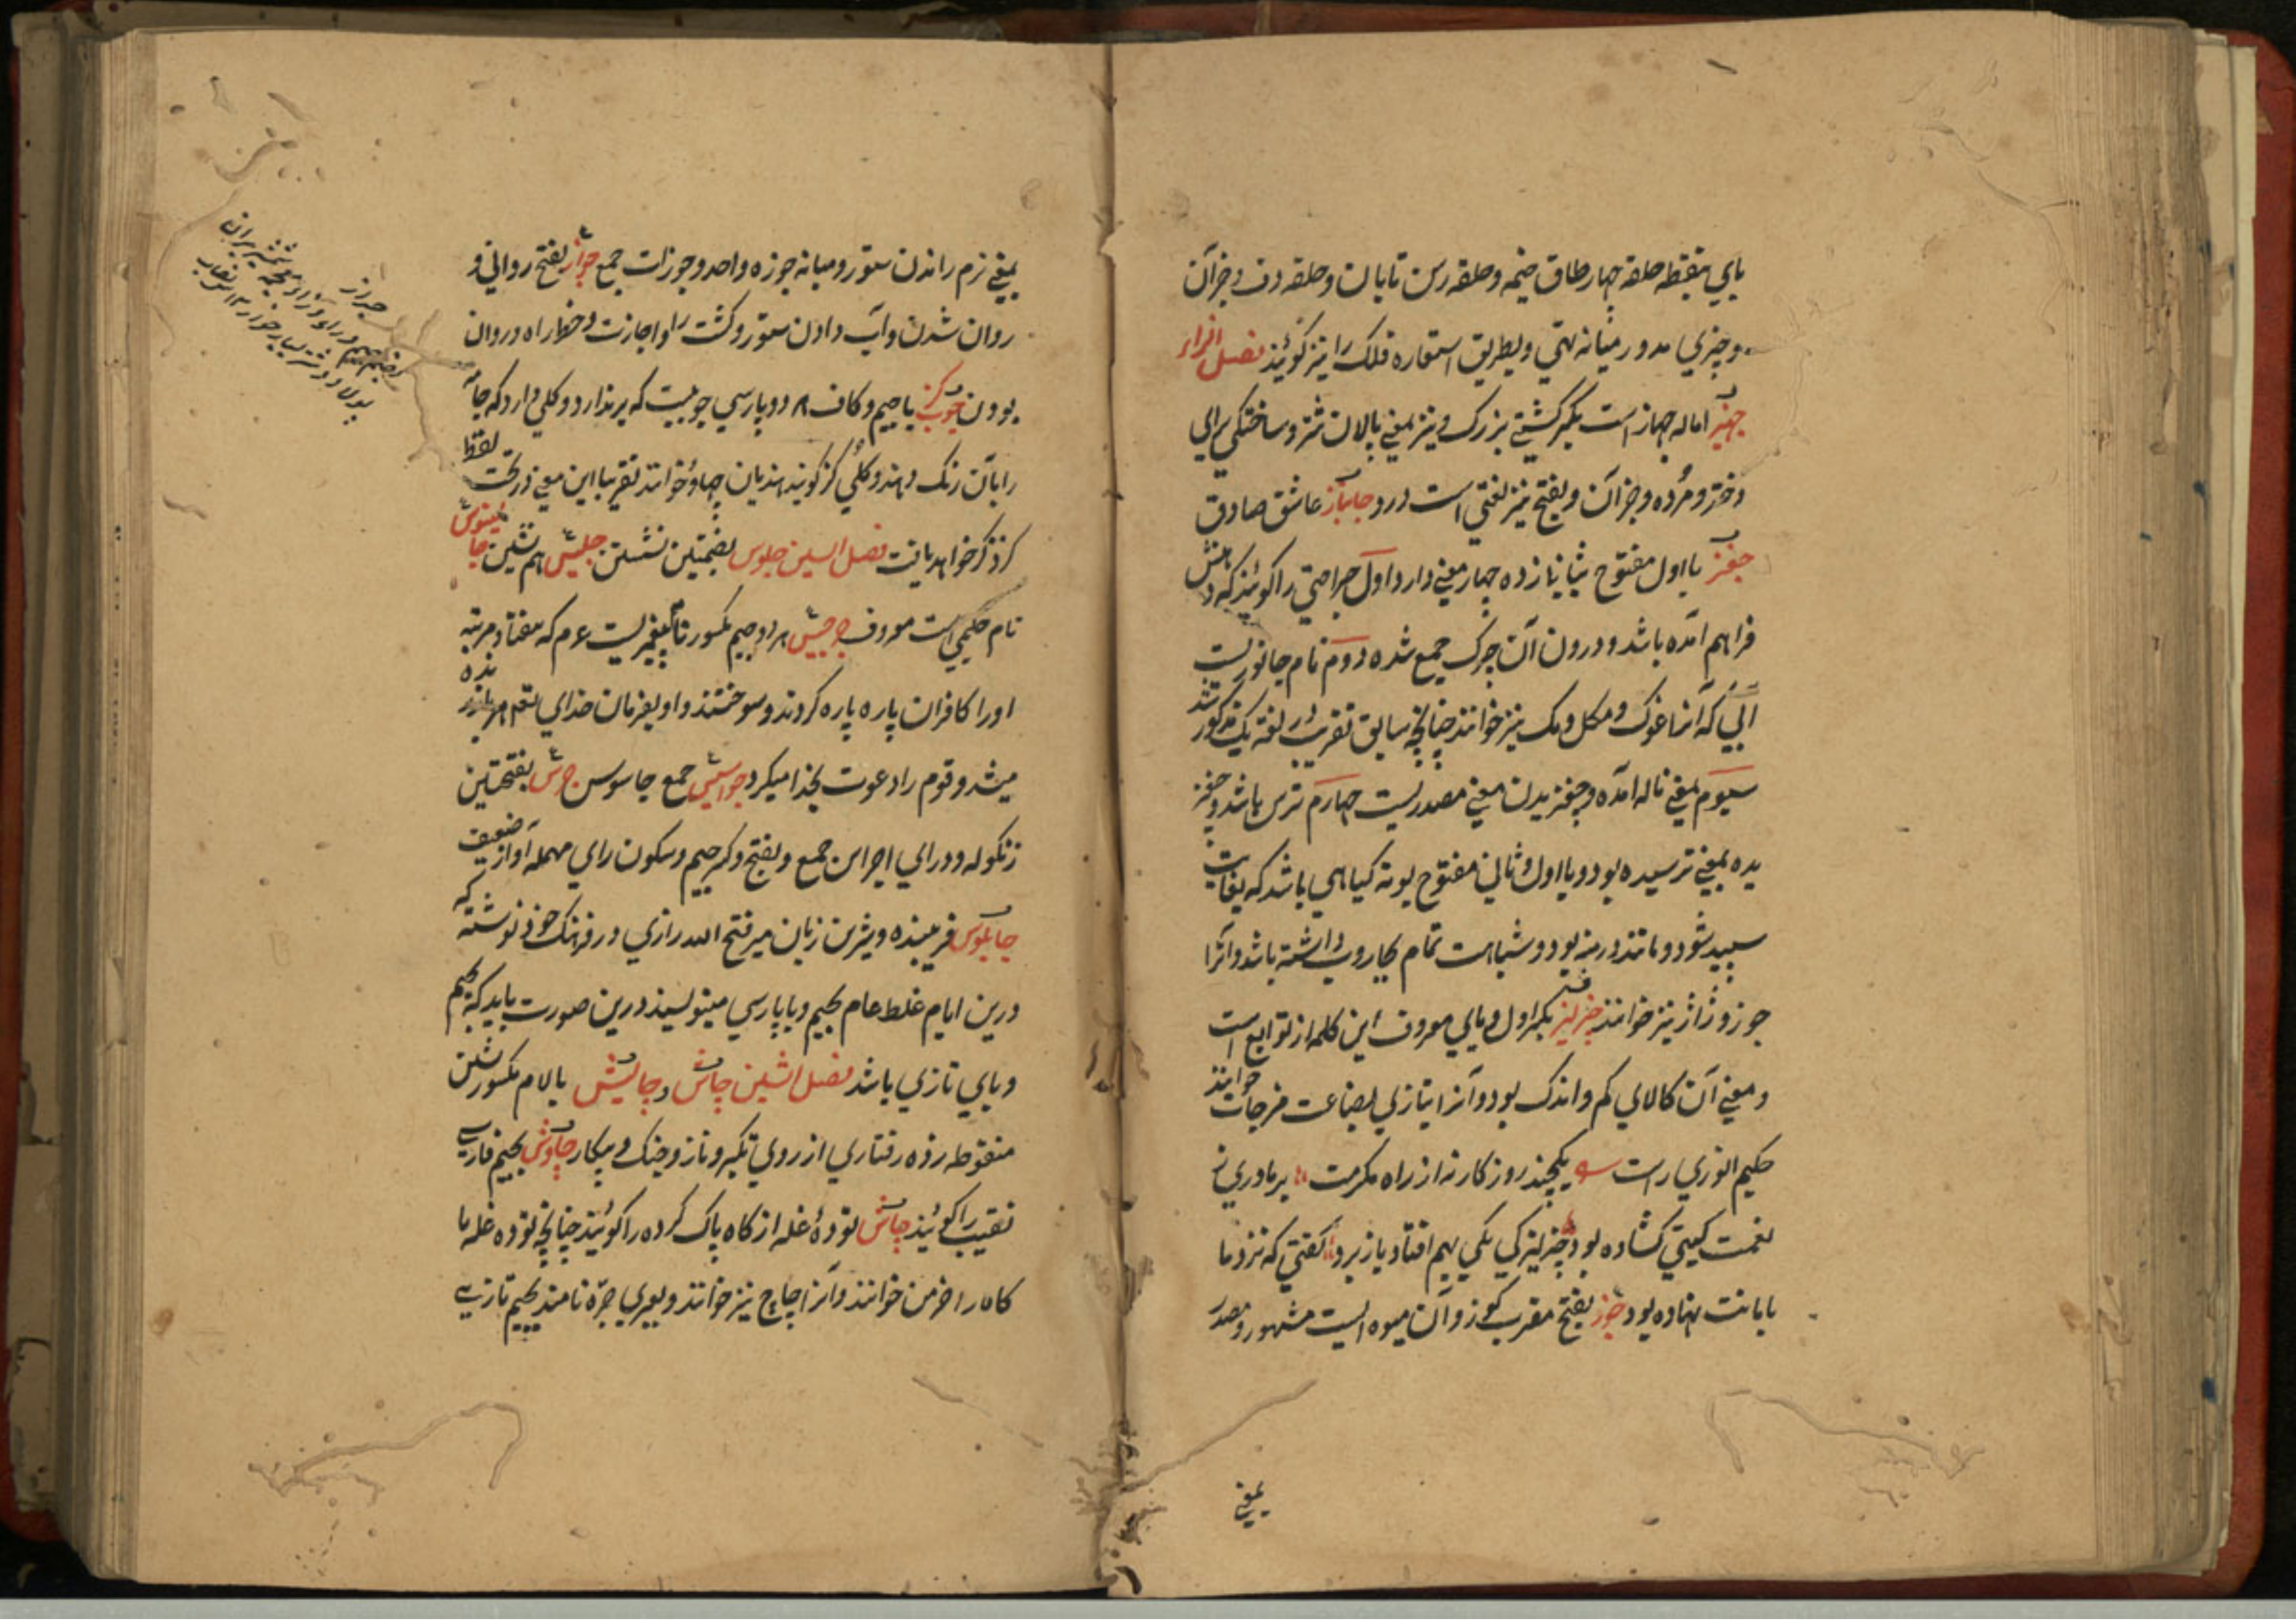 بای بنقطه حلقه چهار طاق خیمه و حلقه رسن تابان و حلقه دف و جز آن
و چیزی مدور میانه تهی و بطریق استعاره فلک را نیز گویند فصل الزاء
جهیز اماله جهاز است بکسر کشتی بزرک و نیز بمعنی پالان شتر و ساختکی برای
دختر و مرده و جز آن و بفتح نیز لغتی است درو جانباز عاشق صادق
جغز با اول مفتوح بثانی زده چهار معنی دارد اول جراحتی را گویند که دهنش
فراهم آمده باشد و درون آن چرک جمع شده دوم نام جانوریست
آبی که آنرا غوک و مکل و مک نیز خوانند چنانچه سابق تقریب لغة بک مذکور شد
سیوم بمعنی ناله آمده و جغزیدن معنی مصدریست چهارم ترس باشد و جغز
یده بمعنی ترسیده بود و با اول و ثانی مفتوح بوته گیاهی باشد که بغایت
سپید شود و مانند درمنه بود و شباهت تمام بجاروب داشته باشد و آنرا
جوز و ژاژ نیز خوانند چیزلیز بکسر اول و یای معروف این کلمه از توابع است
و معنی آن کالای کم و اندک بود و آنرا بتازی بضاعت مزجات خوانند
حکیم انوری راست یکچند روزکار نه از راه مکرمت بر ما دری ز
نعمت کیتی کشاده بود چیزلیزکی یکی بهم افتاد باز برد گفتی که نزد ما
بامانت نهاده بود جوز بفتح معرب کوز و آن میوه ایست مشهور و مصدر
بمعنی
بمعنی نرم راندن ستور و میانه جوزه واحد و جوزات جمع جواز بفتح روانی و
روان شدن و آب دادن ستور و کشت را و اجازت و خط راه و روان
بودن چوب کز با جیم و کاف هر دو پارسی چوبیست که بر ندارد و کلی دارد که جامه
را بآن رنک دهند و کلی کز گویند هندیان چهاؤ خوانند تقریبا این معنی در تحت لفظ
کزذکر خواهد یافت فصل السین جلوس بضمتین نشستن جلیس هم نشین جالینوس
نام حکیمی است معروف جرجیس هر دو جیم مکسور نام پیغمبریست ع م که هفتاد مرتبه
او را کافران پاره پاره کردند و سوختند و او بفرمان خدای تعم هر بار زنده
میشد و قوم را دعوت بخدا میکرد جواسیس جمع جاسوس جرس بفتحتین
زنکوله و درای اجراس جمع و بفتح و کسر جیم و سکون رای مهمله آواز ضعیف
چاپلوس فریبنده و شیرین زبان میر فتح الله رازی در فرهنک خود نوشته که
درین ایام غلط عام بجیم و با پارسی مینویسند درین صورت باید که بجیم
و بای تازی باشد فصل الشین چاش و چالش با لام مکسور شین
منقوطه زده رفتاری از روی تکبر و ناز و جنک و پیکار چاوش بجیم فارسی
نقیب را گویند چاش تودهٔ غله از کاه پاک کرده را گویند چنانچه توده غله با
کاه را خرمن خوانند و آنرا چاچ نیز خوانند و بعربی جره نامند بجیم تازی
جراز
بضم جیم و راء و زاء معجمه شمشیر بران